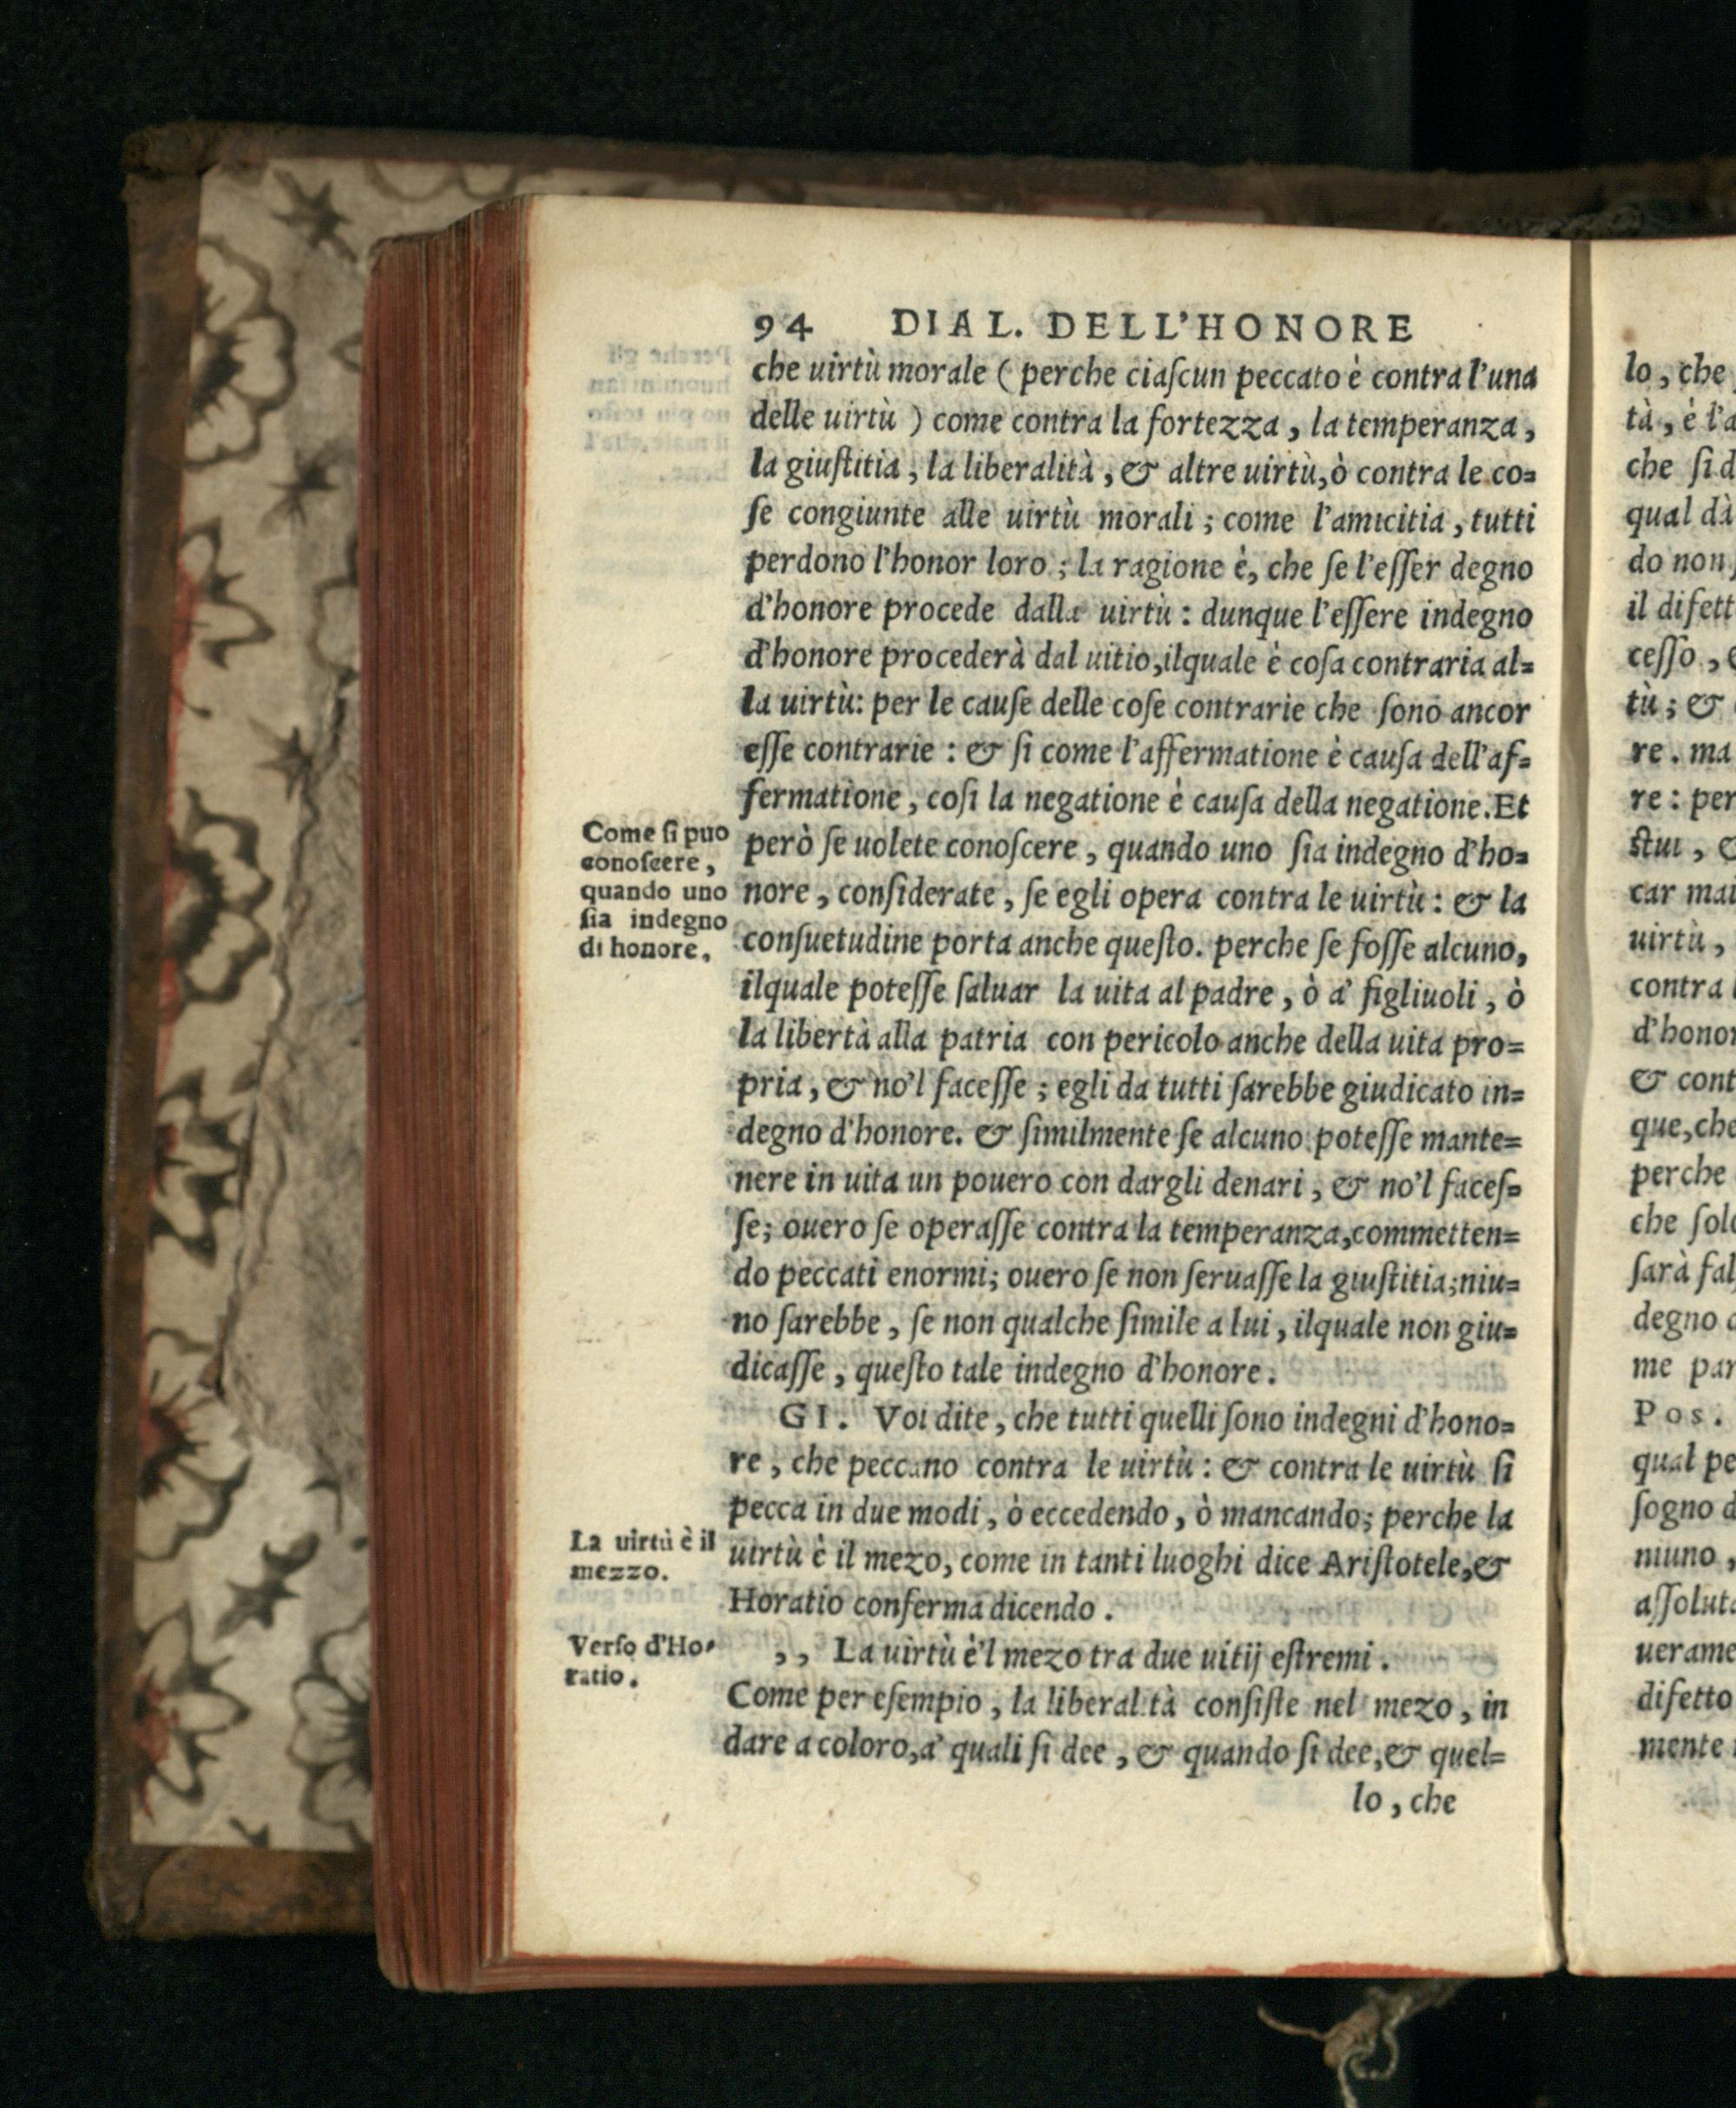 94 DIAL. DELL'HONORE
che uirtù morale ( perche ciaſcun peccato è contra l'una
delle uirtù ) come contra la fortezza, la temperanza,
la giuſtitia, la liberalità, & altre uirtù, ò contra le co=
ſe congiunte alle uirtù morali; come l'amicitia, tutti
perdono l'honor loro; la ragione è, che ſe l'eſſer degno
d'honore procede dalla uirtù: dunque l'eſſere indegno
d'honore procederà dal uitio, ilquale è coſa contraria al=
la uirtù: per le cauſe delle coſe contrarie che ſono ancor
eſſe contrarie: & ſi come l'affermatione è cauſa dell'af=
fermatione, coſi la negatione è cauſa della negatione. Et
Come ſi puo
conoſcere,
quando uno
ſia indegno
di honore.
però ſe uolete conoſcere, quando uno ſia indegno d'ho=
nore, conſiderate, ſe egli opera contra le uirtù: & la
conſuetudine porta anche queſto. perche ſe foſſe alcuno,
ilquale poteſſe ſaluar la uita al padre, ò a' figliuoli, ò
la libertà alla patria con pericolo anche della uita pro=
pria, & no'l faceſſe; egli da tutti ſarebbe giudicato in=
degno d'honore. & ſimilmente ſe alcuno poteſſe mante=
nere in uita un pouero con dargli denari, & no'l faceſ=
ſe; ouero ſe operaſſe contra la temperanza, commetten=
do peccati enormi; ouero ſe non ſeruaſſe la giuſtitia; niu=
no ſarebbe, ſe non qualche ſimile a lui, ilquale non giu=
dicaſſe, queſto tale indegno d'honore.
GI. Voi dite, che tutti quelli ſono indegni d'hono=
re, che peccano contra le uirtù: & contra le uirtù ſi
pecca in due modi, ò eccedendo, ò mancando; perche la
La uirtù è il
mezzo.
uirtù è il mezo, come in tanti luoghi dice Ariſtotele, &
Horatio conferma dicendo.
Verſo d'Ho=
ratio.
,, La uirtù è'l mezo tra due uitij eſtremi.
Come per eſempio, la liberalità conſiſte nel mezo, in
dare a coloro, a' quali ſi dee, & quando ſi dee, & quel=
lo, che
lo, che
tà, è l'a
che ſi d
qual dà
do non
il difett
ceſſo,
tù; &
re. ma
re: per
ſtui,
car mai
uirtù,
contra
d'honor
& cont
que, che
perche
che ſolo
ſarà fal
degno
me par
Pos.
qual pe
ſogno d
niuno,
aſſoluta
uerame
difetto
mente